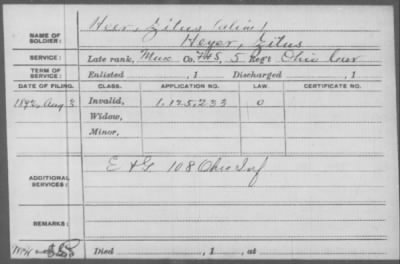 Heer, Zitus (alias)
NAME OF SOLDIER: Heyer, Zitus
SERVICE: Late rank, Mus Co. F&S, 5 Reg't Ohio Cav
TERM OF SERVICE: Enlisted , 1 Discharged , 1
DATE OF FILING. CLASS. APPLICATION NO. LAW. CERTIFICATE NO.
1892, Aug 3 Invalid, 1.125.233 O
Widow,
Minor,
ADDITIONAL SERVICES: E & G. 108 Ohio Inf
REMARKS:
Died , 1 , at